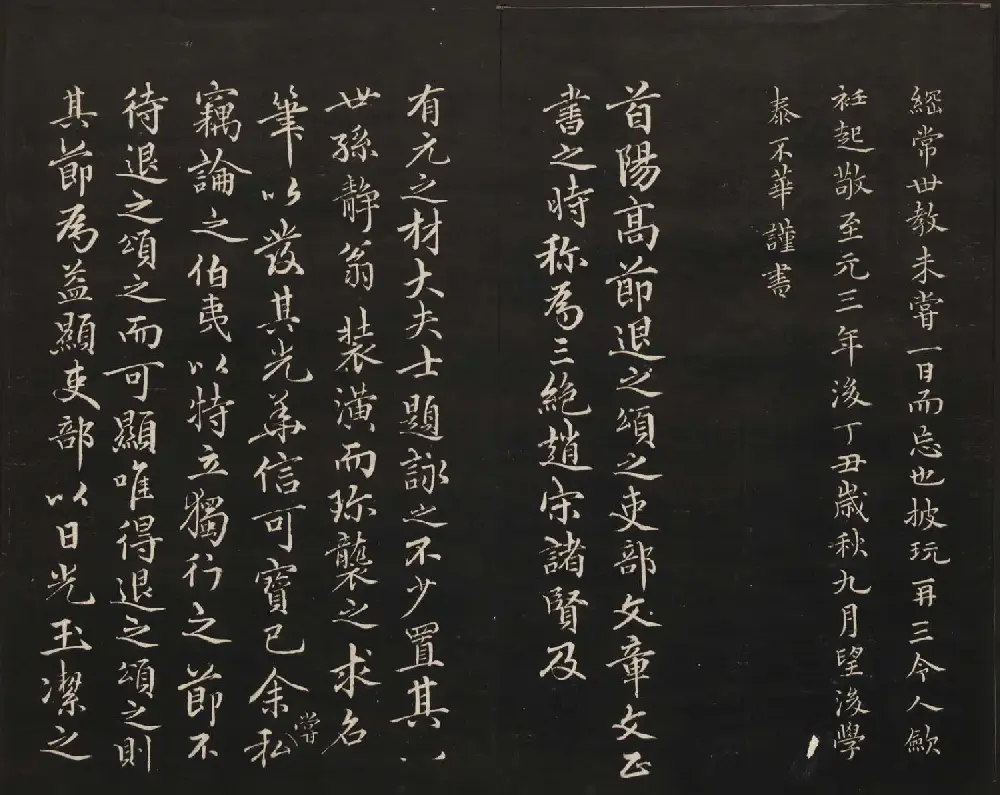 綱常世教未嘗一日而忘也披玩再三令人歛
衽起敬至元三年後丁丑歲秋九月望後學
泰不華謹書
首陽高節退之頌之吏部文章文正
書之時称為三絶趙宋諸賢及
有元之材大夫士題詠之不少置其八
世孫靜翁裝潢而珎襲之求名
筆以發其光華信可寶已余私嘗
竊論之伯夷以特立獨行之節不
待退之頌之而可顯唯得退之頌之則
其節為益顯吏部以日光玉潔之